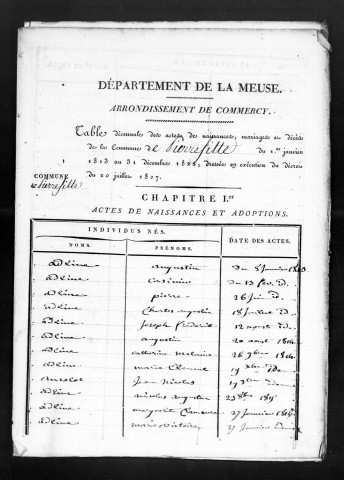 DÉPARTEMENT DE LA MEUSE.
ARRONDISSEMENT DE COMMERCY.
Table décennale des actes de naissances, mariages et décès
de la Commune de Pierrefitte du 1.er janvier
1813 au 31 décembre 1822, dressée en exécution du décret
du 20 juillet 1807.
COMMUNE
de Pierrefitte
CHAPITRE I.er
ACTES DE NAISSANCES ET ADOPTIONS.
INDIVIDUS NÉS.
DATE DES ACTES.
NOMS.
PRÉNOMS.
adeline augustin du 5 janvier 1813
adeline Casimir du 13 fév. d°
adeline pierre 26 juin d°
adeline Charles augustin 18 juillet d°
adeline joseph frédéric 12 aoust d°
adeline augustin 20 aout 1814
adeline catherine 26 9bre 1814
adeline marie Clement
Jean Nicolas
adeline nicolas augustin
adeline marguerite Clemence 27 janvier
adeline marie victoire 27 janvier